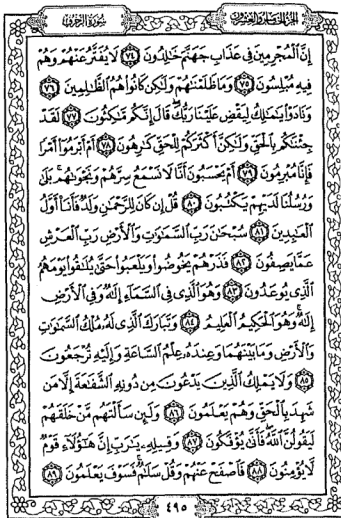 الجزء الخامس والعشرون
سورة الزخرف
إِنَّ ٱلْمُجْرِمِينَ فِى عَذَابِ جَهَنَّمَ خَٰلِدُونَ ٧٤ لَا يُفَتَّرُ عَنْهُمْ وَهُمْ
فِيهِ مُبْلِسُونَ ٧٥ وَمَا ظَلَمْنَٰهُمْ وَلَٰكِن كَانُوا۟ هُمُ ٱلظَّٰلِمِينَ ٧٦
وَنَادَوْا۟ يَٰمَٰلِكُ لِيَقْضِ عَلَيْنَا رَبُّكَ قَالَ إِنَّكُم مَّٰكِثُونَ ٧٧ لَقَدْ
جِئْنَٰكُم بِٱلْحَقِّ وَلَٰكِنَّ أَكْثَرَكُمْ لِلْحَقِّ كَٰرِهُونَ ٧٨ أَمْ أَبْرَمُوٓا۟ أَمْرًا
فَإِنَّا مُبْرِمُونَ ٧٩ أَمْ يَحْسَبُونَ أَنَّا لَا نَسْمَعُ سِرَّهُمْ وَنَجْوَىٰهُم بَلَىٰ
وَرُسُلُنَا لَدَيْهِمْ يَكْتُبُونَ ٨٠ قُلْ إِن كَانَ لِلرَّحْمَٰنِ وَلَدٌ فَأَنَا۠ أَوَّلُ
ٱلْعَٰبِدِينَ ٨١ سُبْحَٰنَ رَبِّ ٱلسَّمَٰوَٰتِ وَٱلْأَرْضِ رَبِّ ٱلْعَرْشِ
عَمَّا يَصِفُونَ ٨٢ فَذَرْهُمْ يَخُوضُوا۟ وَيَلْعَبُوا۟ حَتَّىٰ يُلَٰقُوا۟ يَوْمَهُمُ
ٱلَّذِى يُوعَدُونَ ٨٣ وَهُوَ ٱلَّذِى فِى ٱلسَّمَآءِ إِلَٰهٌ وَفِى ٱلْأَرْضِ
إِلَٰهٌ وَهُوَ ٱلْحَكِيمُ ٱلْعَلِيمُ ٨٤ وَتَبَارَكَ ٱلَّذِى لَهُۥ مُلْكُ ٱلسَّمَٰوَٰتِ
وَٱلْأَرْضِ وَمَا بَيْنَهُمَا وَعِندَهُۥ عِلْمُ ٱلسَّاعَةِ وَإِلَيْهِ تُرْجَعُونَ
٨٥ وَلَا يَمْلِكُ ٱلَّذِينَ يَدْعُونَ مِن دُونِهِ ٱلشَّفَٰعَةَ إِلَّا مَن
شَهِدَ بِٱلْحَقِّ وَهُمْ يَعْلَمُونَ ٨٦ وَلَئِن سَأَلْتَهُم مَّنْ خَلَقَهُمْ
لَيَقُولُنَّ ٱللَّهُ فَأَنَّىٰ يُؤْفَكُونَ ٨٧ وَقِيلِهِۦ يَٰرَبِّ إِنَّ هَٰٓؤُلَآءِ قَوْمٌ
لَّا يُؤْمِنُونَ ٨٨ فَٱصْفَحْ عَنْهُمْ وَقُلْ سَلَٰمٌ فَسَوْفَ يَعْلَمُونَ ٨٩
٤٩٥